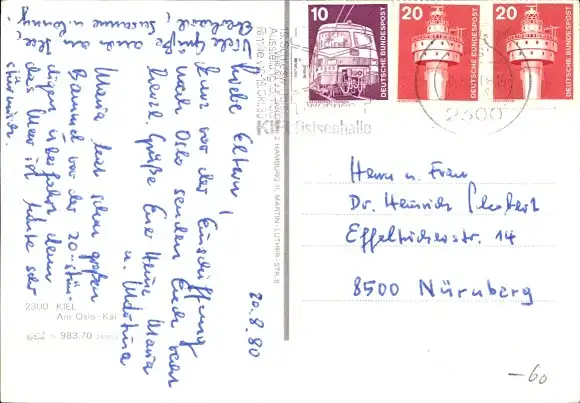 20.8.80
Liebe Eltern!
Kurz vor der Einschiffung
nach Oslo senden Euch
beste Grüße Eure Heinz, Maria
u. Martina
Maria hat schon großen
Bammel vor der 20-stün-
digen Überfahrt, denn
das Meer ist heute sehr
stürmisch.
Viele Grüße
auch an
Susanne u.
2300 KIEL
Am Oslo-Kai
983/70
HAMBURG 11, MARTIN-LUTHER-STR. 8
10
DEUTSCHE BUNDESPOST
20
DEUTSCHE BUNDESPOST
20
DEUTSCHE BUNDESPOST
2300
Ostseehalle
Herrn u. Frau
Dr. Heinrich
14
8500 Nürnberg
-60